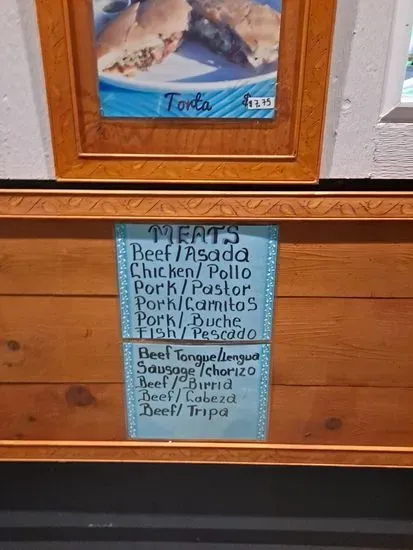 Torta $7.75
MEATS
Beef/Asada
Chicken/Pollo
Pork/Pastor
Pork/Carnitos
Pork/Buche
Fish/Pescado
Beef Tongue/Lengua
Sausage/chorizo
Beef/Birria
Beef/Cabeza
Beef/Tripa